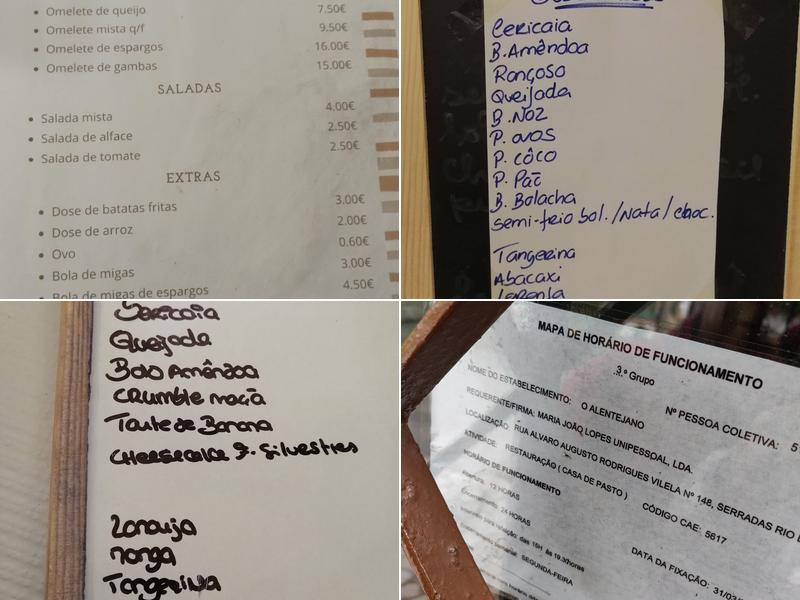 Omelete de queijo 7.50€
Omelete mista q/f 9.50€
Omelete de espargos 16.00€
Omelete de gambas 15.00€
SALADAS
Salada mista 4.00€
Salada de alface 2.50€
Salada de tomate 2.50€
EXTRAS
Dose de batatas fritas 3.00€
Dose de arroz 2.00€
Ovo 0.60€
Bola de migas 3.00€
Bola de migas de espargos 4.50€
Cericaia
B. Amêndoa
Rançoso
Queijada
B. Noz
P. ovos
P. côco
P. Pão
B. Bolacha
Semi-frio bol. / Nata / choc.
Tangerina
Abacaxi
Laranja
Sericaia
Queijada
Bolo Amêndoa
Crumble maçã
Tarte de Banana
Cheesecake F. Silvestres
Laranja
Manga
Tangerina
MAPA DE HORÁRIO DE FUNCIONAMENTO
3.º Grupo
NOME DO ESTABELECIMENTO: O ALENTEJANO Nº PESSOA COLETIVA: 5
REQUERENTE/FIRMA: MARIA JOÃO LOPES UNIPESSOAL, LDA.
LOCALIZAÇÃO: RUA ALVARO AUGUSTO RODRIGUES VILELA Nº 148, SERRADAS RIO
ATIVIDADE: RESTAURAÇÃO ( CASA DE PASTO ) CÓDIGO CAE: 5617
HORÁRIO DE FUNCIONAMENTO
Abertura: 12 HORAS
Encerramento: 24 HORAS
Intervalo para refeição: das 15H às 19.30horas
Encerramento semanal: SEGUNDA-FEIRA
DATA DA FIXAÇÃO: 31/03/